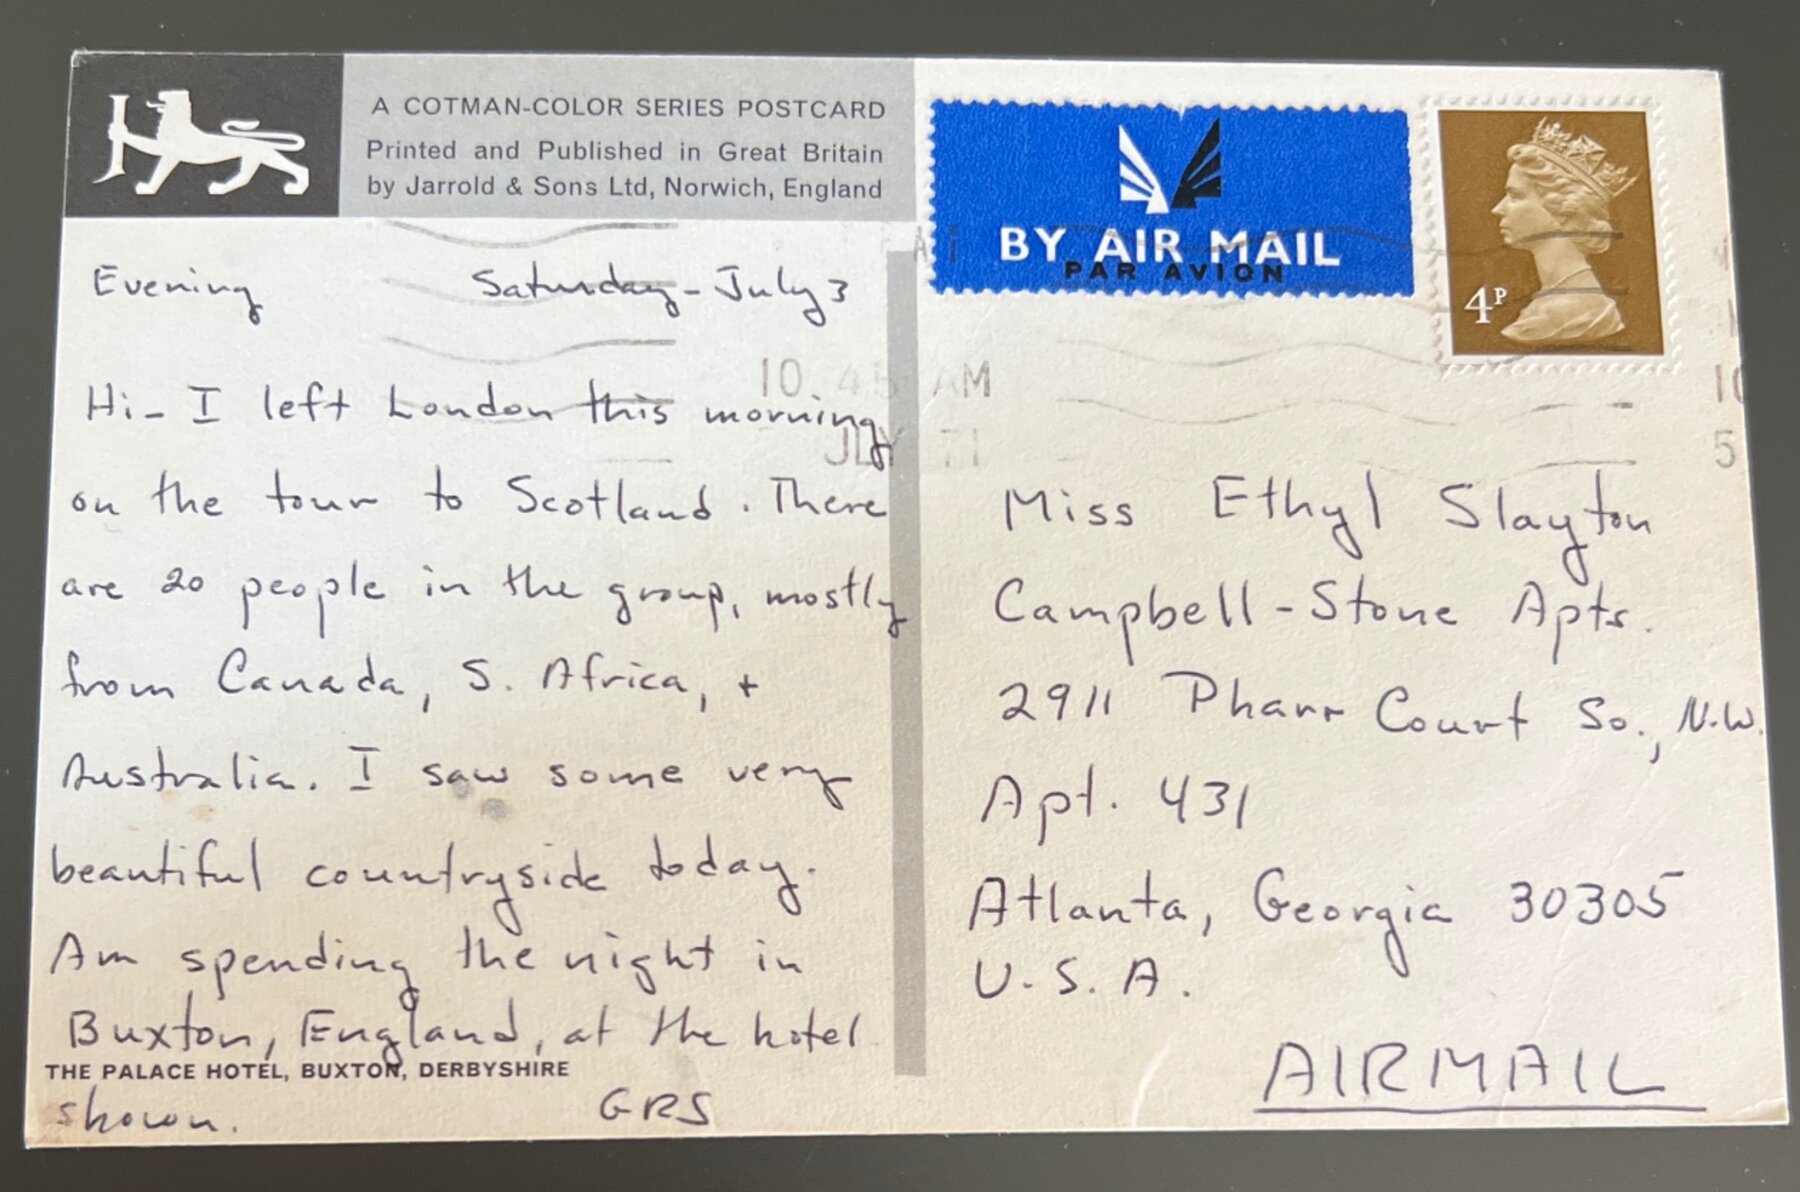 A COTMAN-COLOR SERIES POSTCARD
Printed and Published in Great Britain
by Jarrold & Sons Ltd, Norwich, England
BY AIR MAIL
PAR AVION
4P
10 45 AM
JLY 71
10
5
Evening Saturday - July 3
Hi - I left London this morning
on the tour to Scotland. There
are 20 people in the group, mostly
from Canada, S. Africa, +
Australia. I saw some very
beautiful countryside today.
Am spending the night in
Buxton, England, at the hotel
THE PALACE HOTEL, BUXTON, DERBYSHIRE
shown. GRS
Miss Ethyl Slayton
Campbell-Stone Apts.
2911 Pharr Court So., N.W.
Apt. 431
Atlanta, Georgia 30305
U.S.A.
AIRMAIL